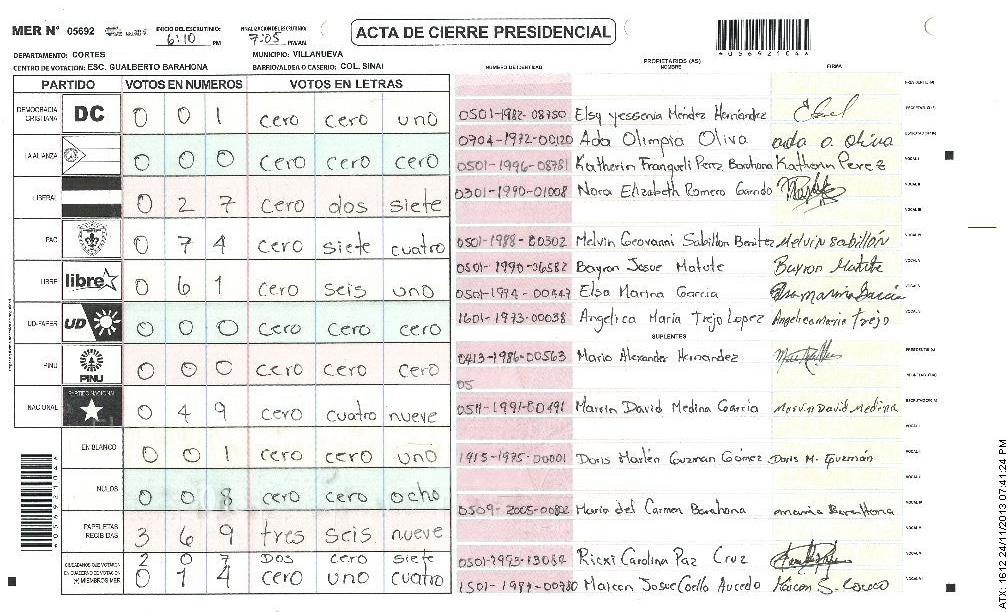 MER Nº 05692
INICIO DEL ESCRUTINIO: 6:10 PM
FINALIZACION DEL ESCRUTINIO: 7:05 PM/AM
ACTA DE CIERRE PRESIDENCIAL
DEPARTAMENTO: CORTES MUNICIPIO: VILLANUEVA
CENTRO DE VOTACION: ESC. GUALBERTO BARAHONA BARRIO/ALDEA O CASERIO: COL. SINAI
PARTIDO VOTOS EN NUMEROS VOTOS EN LETRAS
DEMOCRACIA CRISTIANA DC 0 0 1 cero cero uno
LA ALIANZA 0 0 0 cero cero cero
LIBERAL 0 2 7 cero dos siete
PAC 0 7 4 cero siete cuatro
LIBRE libre 0 6 1 cero seis uno
UD-FAPER UD 0 0 0 cero cero cero
PINU PINU 0 0 0 cero cero cero
NACIONAL PARTIDO NACIONAL 0 4 9 cero cuatro nueve
EN BLANCO 0 0 1 cero cero uno
NULOS 0 0 8 cero cero ocho
PAPELETAS RECIBIDAS 3 6 9 tres seis nueve
CIUDADANOS QUE VOTARON EN CUADERNO DE VOTACION 2 0 7 Dos cero siete
(+) MIEMBROS MER 0 1 4 cero uno cuatro
NUMERO DE IDENTIDAD PROPIETARIOS (AS) NOMBRE FIRMA
0501-1982-08750 Elsy yessenia Méndez Hernández
0704-1972-00120 Ada Olimpia Oliva ada o. oliva
0501-1996-08781 Katherin Franqueli Perez Barahona Katherin Perez
0301-1990-01008 Nora Elizabeth Romero Garrido
0501-1988-80302 Melvin Geovanni Sabillon Benitez Melvin sabillón
0501-1990-06582 Bayron Josue Matute Bayron Matute
0501-1994-00447 Elsa Marina Garcia Elsa Marina Garcia
1601-1973-00038 Angelica Maria Trejo Lopez Angelica Maria Trejo
SUPLENTES
0413-1986-00563 Mario Alexander Hernandez
05
0511-1991-80491 Marvin David Medina Garcia Marvin David Medina
1915-1975-00001 Doris Marlén Guzman Gómez Doris M. Guzmán
0509-2005-00802 Maria del Carmen Barahona maria Barahona
0501-1993-13084 Ricxi Carolina Paz Cruz
ATX: 1612 24/11/2013 07:41:24 PM